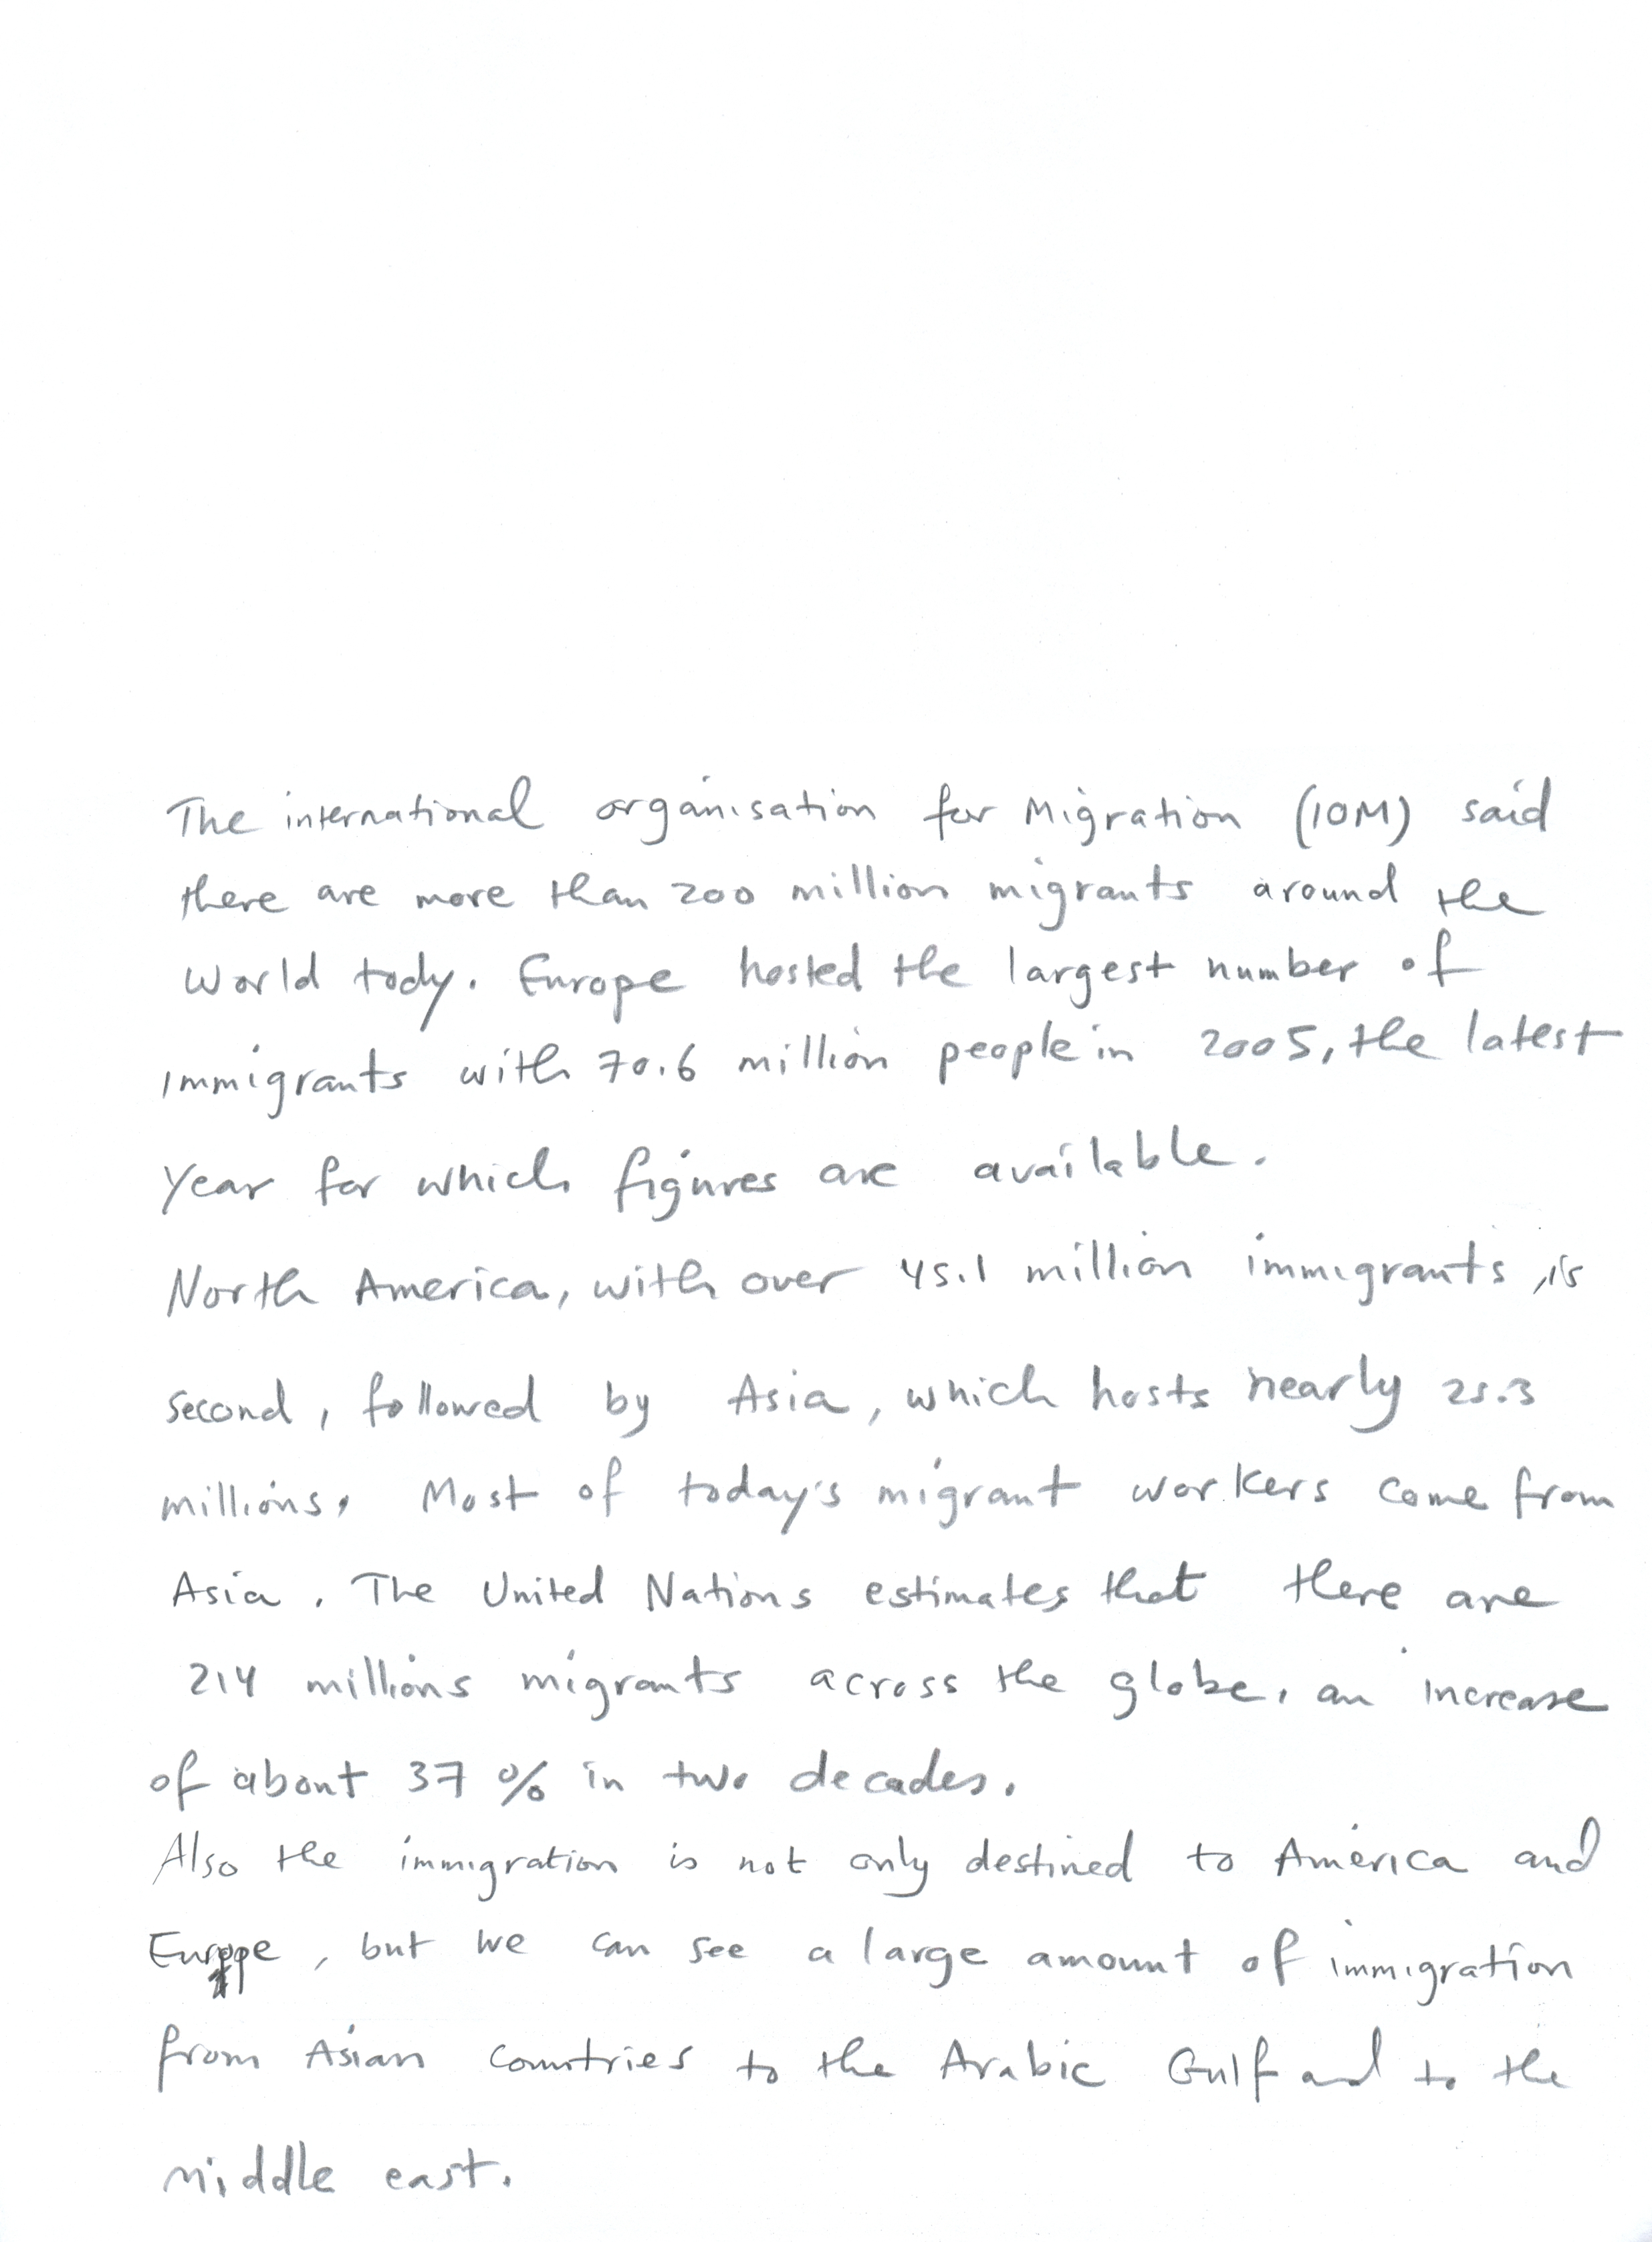 The international organisation for Migration (IOM) said
there are more than 200 million migrants around the
World tody. Europe hosted the largest number of
immigrants with 70.6 million people in 2005, the latest
year for which figures are available.
North America, with over 45.1 million immigrants, is
second, followed by Asia, which hosts nearly 25.3
millions. Most of today's migrant workers come from
Asia. The United Nations estimates that there are
214 millions migrants across the globe, an increase
of about 37 % in two decades.
Also the immigration is not only destined to America and
Europe, but we can see a large amount of immigration
from Asian countries to the Arabic Gulf and to the
middle east.